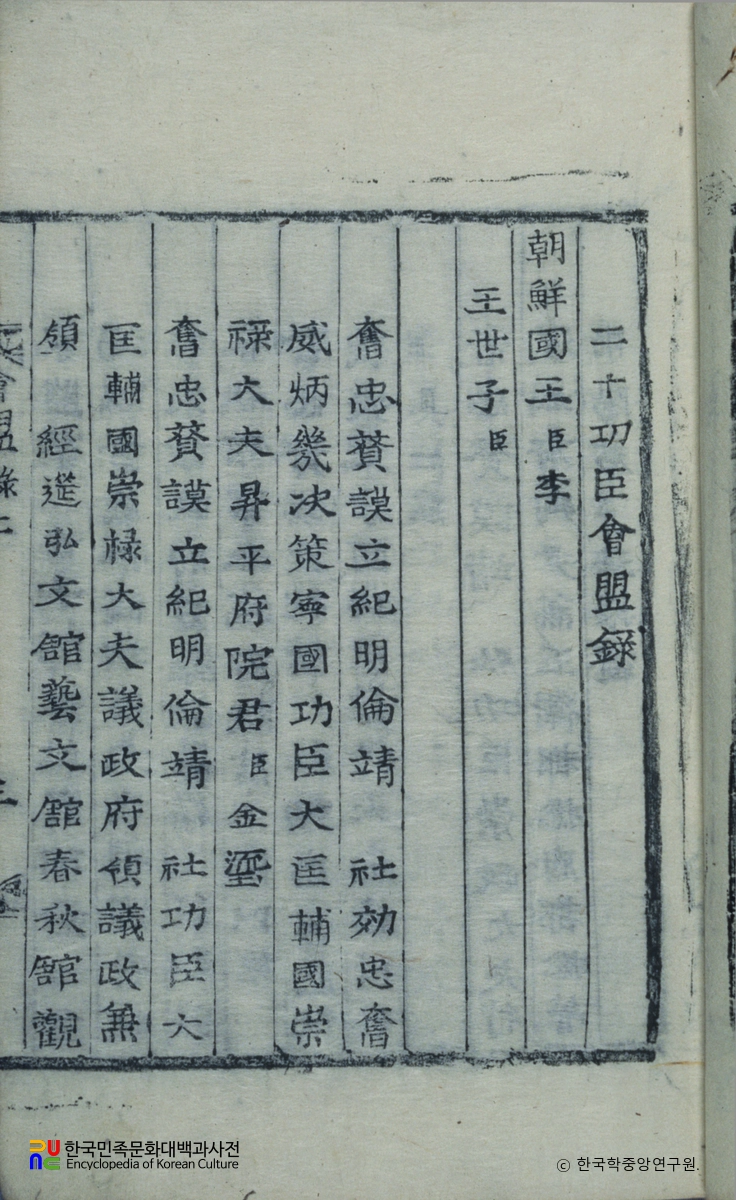 二十功臣會盟錄
朝鮮國王臣李
王世子臣
奮忠賛謨立紀明倫靖 社効忠奮
威炳幾决策寧國功臣大匡輔國崇
祿大夫昇平府院君臣金瑬
奮忠賛謨立紀明倫靖 社功臣大
匡輔國崇祿大夫議政府領議政兼
領 經筵弘文館藝文館春秋館觀
會盟錄
한국민족문화대백과사전
Encyclopedia of Korean Culture
© 한국학중앙연구원